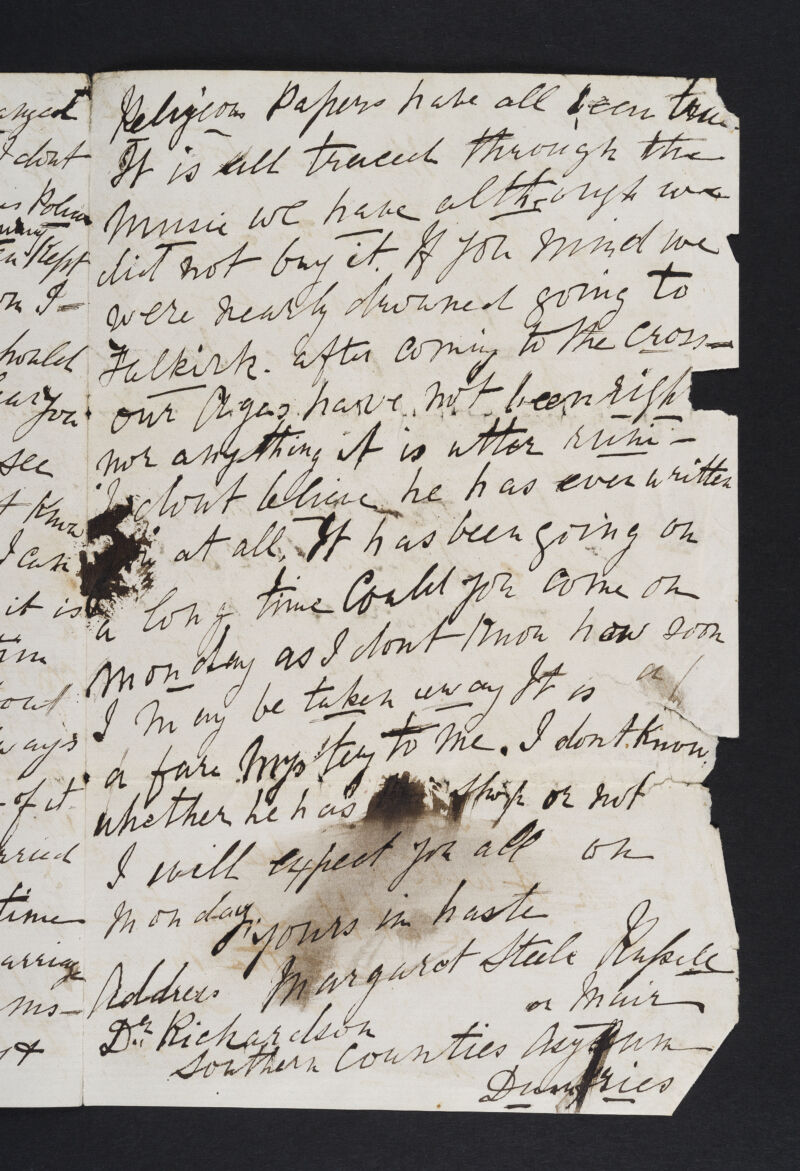 anged
I dont
as Police
Kept
on I-
hould
ear you
see
t Know
I can
it is
tim
ways
- of it
rried
time
arriag
ms-
st
Religious Papers have all been true
It is all traced through the
music we have although we
did not buy it. If you mind we
were nearly drowned going to
Falkirk. after coming to the cross-
our Ages have not been righ
nor anything it is utter ruin-
I dont believe he has ever written
at all. It has been going on
a long time Could you come on
Monday as I dont Know how soon
I may be taken away It is a/
a fare Mystery to me. I dont Know
whether he has shop or not
I will expect you all on
Monday.
yours in haste
Margaret Steele Russell
or Muir
Address
Dr. Richardson
Southern Counties Asylum
Dumfries